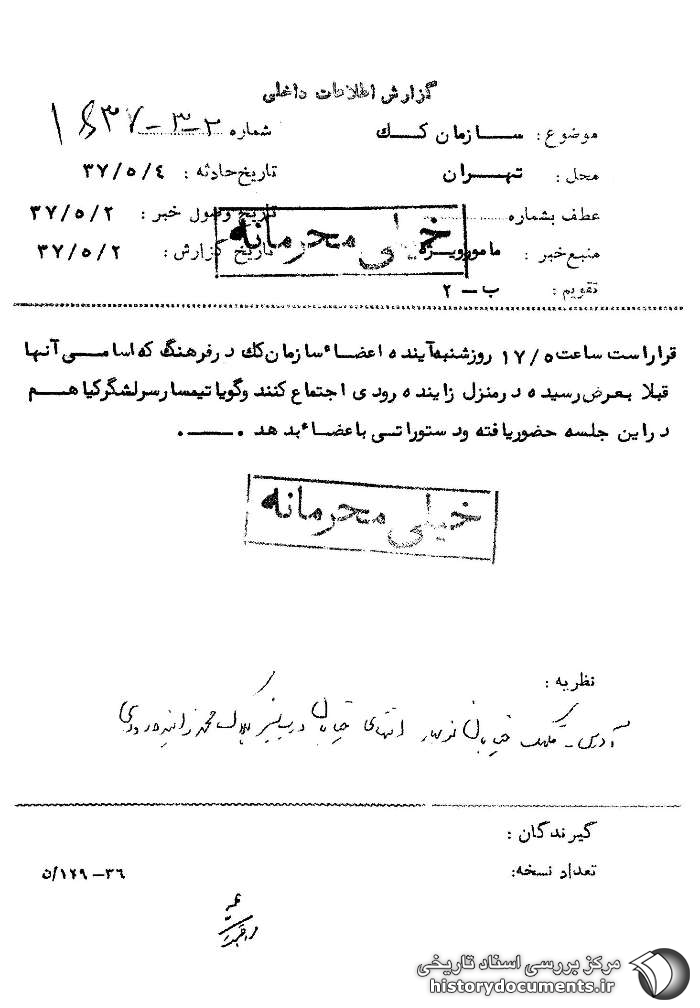 گزارش اطلاعات داخلی
موضوع : سازمان کک
شماره ۲-۳-
محل : تهران
تاریخ حادثه : ۳۷/۵/٤
عطف بشماره
تاریخ وصول خبر : ۳۷/۵/۲
منبع خبر : مامور ویژه
تاریخ گزارش : ۳۷/۵/۲
خیلی محرمانه
تقویم : ب - ۲
قرار است ساعت ۱۷/۵ روز شنبه آینده اعضاء سازمان کک در فرهنگ که اسامی آنها
قبلا بعرض رسیده در منزل زاینده رودی اجتماع کنند و گویا تیمسار سرلشگر کیا هم
در این جلسه حضور یافته و دستوراتی با عضاء بدهد . ـــ .
خیلی محرمانه
نظریه :
آدرس - خیابان انتهای خیابان محمد زاینده رودی
گیرندگان :
تعداد نسخه:
۳۶-۱۲۹/ن
مرکز بررسی اسناد تاریخی
historydocuments.ir